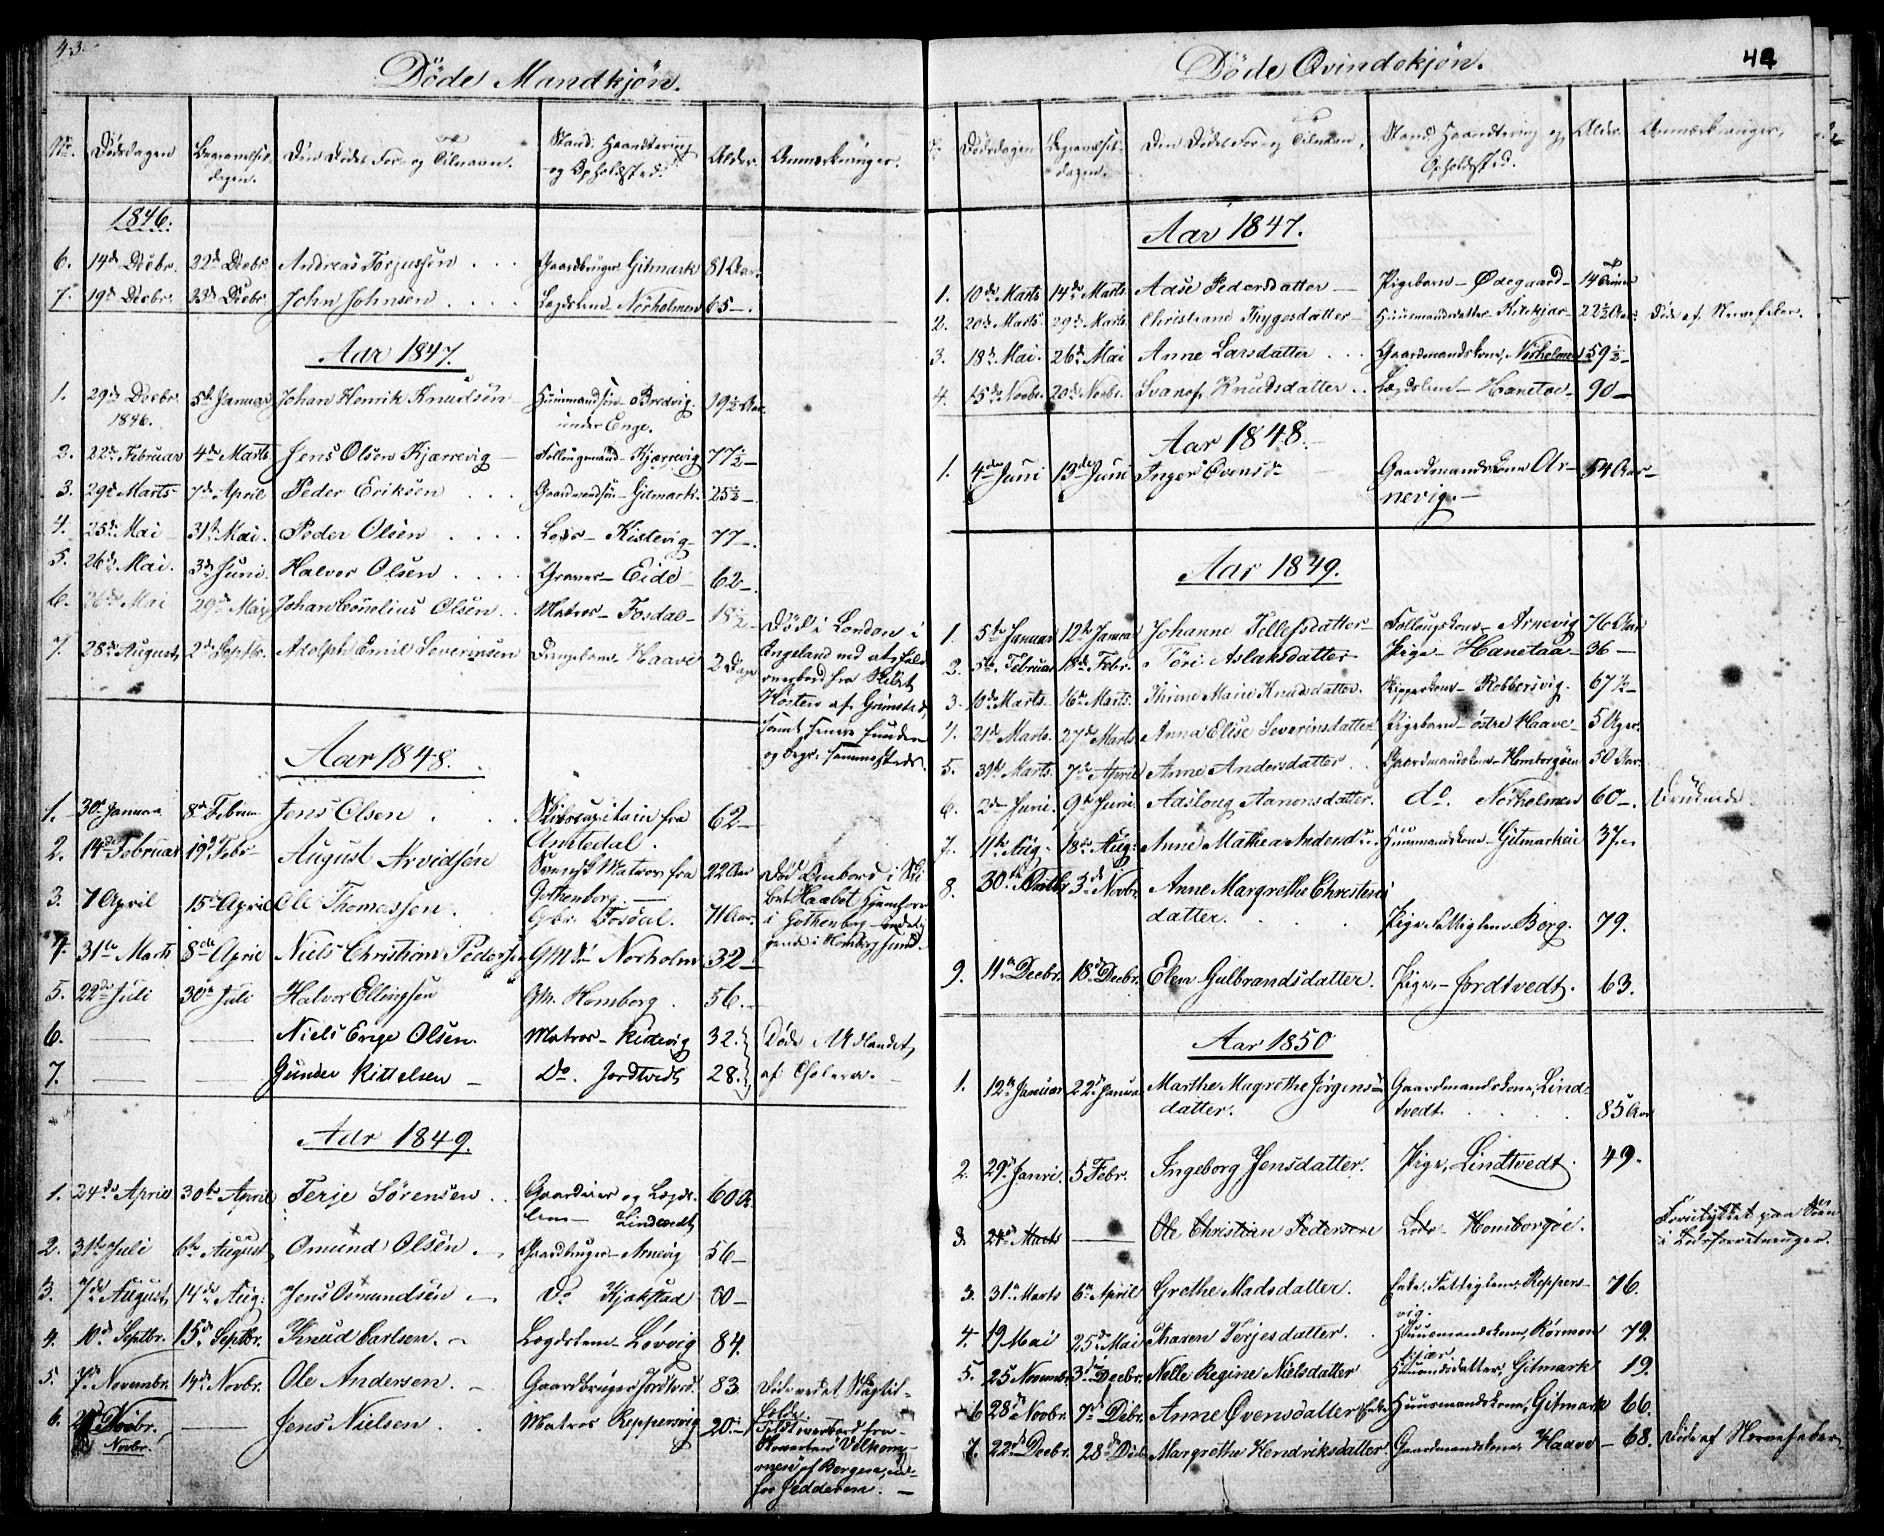 43.
Döde Mandkjön.
No. Dödsdagen Begravelses- Den Dödes For- og Tilnavn. Stand, Haandtering Alder. Anmærkninger.
dagen. og Opholdsted.
1846.
6. 14de Decbr. 22de Decbr. Andreas Torjussen Gaardbruger Gitmark 81 Aar.
7. 19de Decbr. 23de Decbr. John Johnsen Lægdslem Nörholmen 65 —.
Aar 1847.
1. 29de Decbr. 5te Januar Johan Henrik Knudsen Huusmandssön Bredvig 19½ Aar.
1846. under Enge.
2. 22de Februar 4de Marts Jens Olsen Kjærrevig Follaugsmand Kjærrevig 77½ —
3. 29de Marts 7de April Peder Eriksen Gaardmandssön Gitmark 25½ —.
4. 25de Mai 31te Mai. Peder Olsen Lods — Kistevig 77 —.
5. 26de Mai. 3de Juni. Halvor Olsen Graver — Eide 62 —.
6. 26de Mai 29de Mai Johan Cornelius Olsen Matros — Fosdal 18½ — Död i London i
7. 28de August 2de Septbr. Adolph Emil Severinsen Drengebarn Haave 2 Dage Engeland ved at falde
overbord fra Skibet
Hösten af Grimstad,
samt senere funden
og begr. sammesteds.
Aar 1848.
1. 30te Januar 8de Februar Jens Olsen Skibscapitain fra 62 —
Omtedal.
2. 14de Februar 19de Febr. August Arvidsön Svensk Matros fra 22 Aar Död Ombord i Ski
Gothenborg — bet Haabet Hjemhörende
3. 7 April 15de April Ole Thomassen Gbr. Fosdal. 71 Aar. i Gothenborg
i Homborgsund.
4. 31te Marts 8de April Niels Christian Pedersen Gmdsön Norholm 32 —
5. 22de Juli 30te Juli Halvor Ellingsen Gm. Homborg. 56. —
6. — — Niels Enge Olsen. Matros — Kistevig 32. Döde i Udlandet,
7. — — Gunder Kittelsen — Do. Jordtvedt 28. af Cholera. —
Aar 1849.
1. 24de April 30te April Terje Sörensen Gaardeier og Lægds- 60 A.
lem — Lindtvedt
2. 31te Juli 6te August Omund Olsen — Gaardbruger — Arnevig 56 —
3. 7de August 14de Aug: Jens Osmundsen — Do Kjökstad 80 —
4. 10de Septbr. 15de Septbr. Knud Carlsen. — Lægdslem Lövvig 84.
5. 7de Novembr. 14de Novbr. Ole Andersen. — Gaardbruger Jordtvedt 83 Döde ved et Slagtil-
fælde.
6. Novbr. — Jens Nielsen Matros Reppersvig 20 — Faldt overbord fra
Novbr. Skonnerten Velkom-
men af Bergen,
for Fedderen. —
44
Döde Qvindekjön.
No. Dödsdagen Begravelses- Den Dödes For- og Tilnavn, Stand Haandtering og Alder. Anmærkninger,
dagen. Opholdsted.
Aar 1847.
1. 10de Marts 14de Marts. Aase Pedersdatter — Pigebarn — Ödegaard — 14 Timer
2. 20de Marts 29de Marts. Christiane Thygesdatter — Huusmandsdatter — Kirkkjær — 22½ Aar: Död af Nervefeber.
3. 18de Mai. 26de Mai Anne Larsdatter Gaardmandskone, Nörholmen 59½ —
4. 15de Novbr. 20de Novbr. Svanof Knudsdatter Lægdslem — Hanetoe — 90 —
Aar 1848.
1. 4de Juni 13de Juni Inger Evensd. Gaardmandskone Ar- 54 Aar —
nevig. —
Aar 1849.
1. 5te Januar 12te Januar Johanne Tellefsdatter — Follaugskone — Arnevig 76 Aar
2. 5te Februar 18de Febr. Töri Aslaksdatter Pige — Hanetaa — 36 —
3. 10de Marts. 16de Marts. Thrine Marie Knudsdatter. Skipperkone — Robbersvig. 67½ —
4. 21de Marts. 27de Marts Anna Elise Severinsdatter Pigebarn — östre Haave 5 Uger.
5. 31te Marts. 7de April Anne Andersdatter Gaardmandskone — Homborgöen 50 Aar.
6. 2de Juni. 9de Juni. Aaslaug Aanonsdatter. do. Nörholmen 60 —. Druknede
7. 11te Aug. 18de Aug: Anne Mathea Andersdtr. Huusmandskone — Gitmarkeie 37 —.
8. 30te Octb 3de Novbr. Anne Margrethe Christens
datter. Pige, Fattiglem Borg. 79.
9. 11te Decbr. 18de Decbr. Elen Gulbrandsdatter. Pige — Jordtvedt. 63.
Aar 1850
1. 12te Januar 22de Januar Marthe Magrethe Jörgens- Gaardmandskone, Lind-
datter. tvedt 85 Aar
2. 29de Janri. 5 Febr. Ingeborg Jensdatter. Pige, Lindtvedt. 49.
3. 24de Marts — Ole Christian Pedersen Lods — Homborgöe. Forulykket paa Söen
i Lodsforretninger.
3. 31te Marts 6te April Grethe Madsdatter. Enke, Fattiglem, Reppers- 76.
vig.
4. 19 Mai 25de Mai Karen Terjesdatter. Huusmandskone, Rörmon 79.
kjær.
5. 25 Novembr. 3de Decbr. Nelle Regine Nielsdatter Huusmdsdatter, Gitmark 19.
6 28de Novbr. 7de Debr. Anne Övensdatter Enke Huusmandskone, Gitmark 66.
7. 22de Decbr. 28de Decbr. Margrethe Hendriksdatter Gaardmandskone Haave — 68. Döde af Nervefeber.